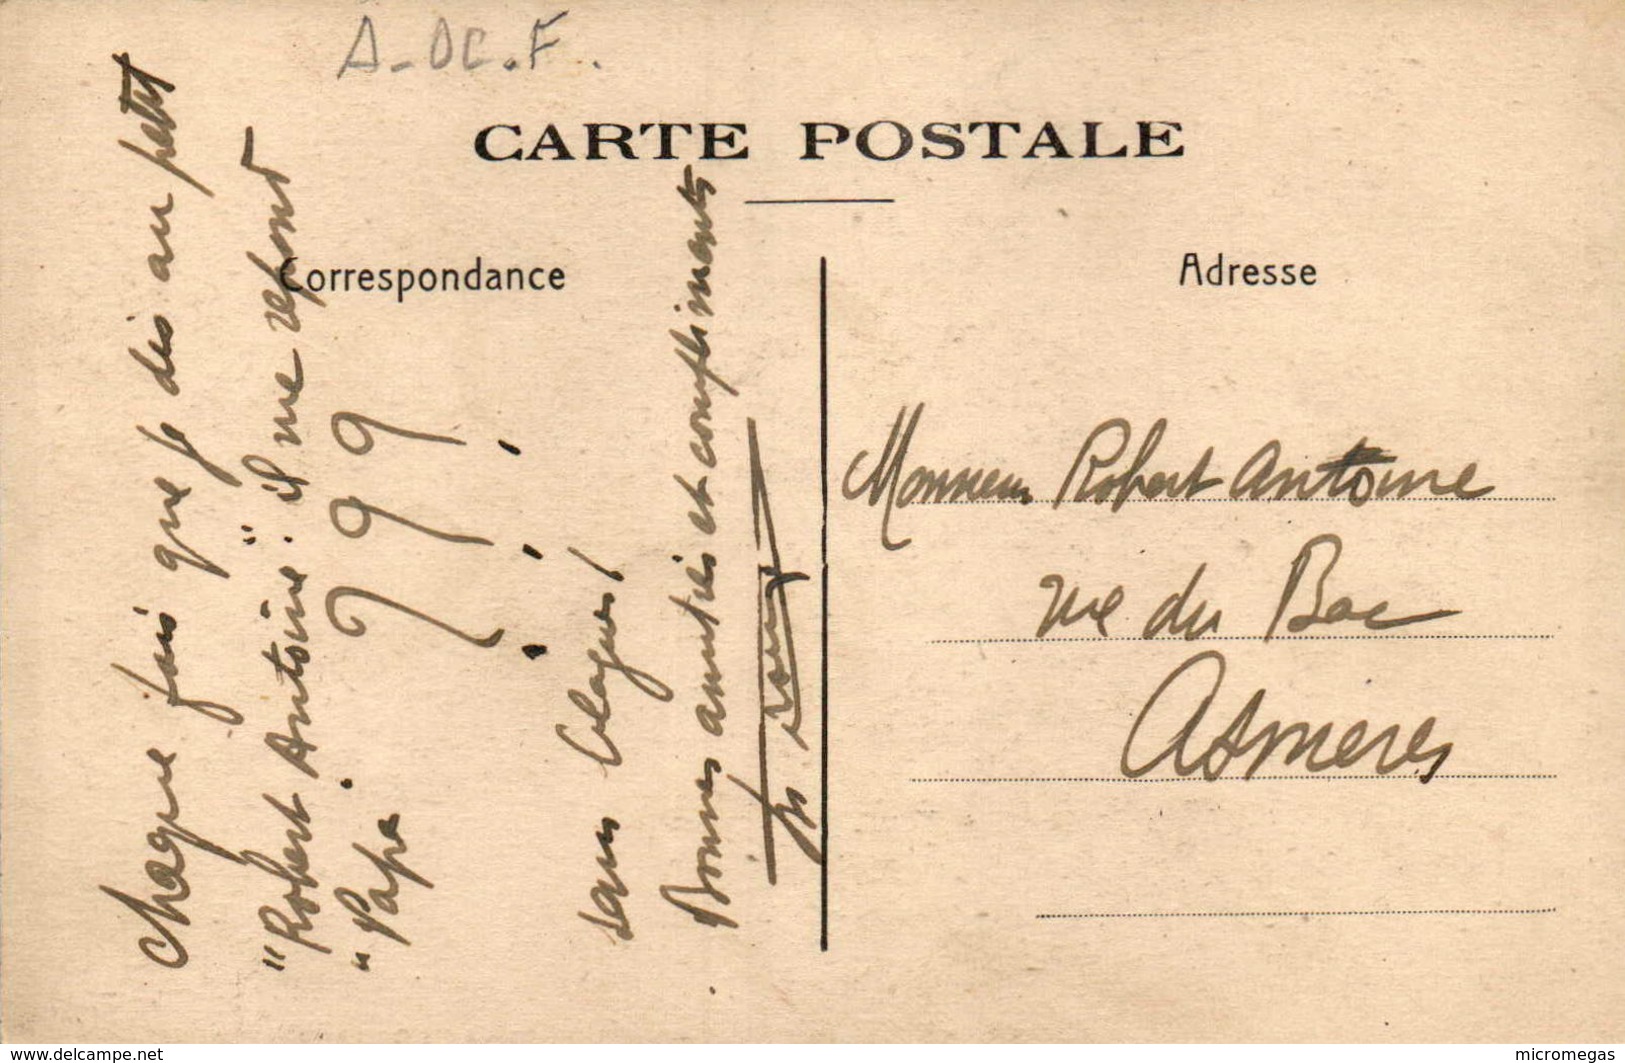 A-OC.F.
CARTE POSTALE
Correspondance
Chaque fois que je dis au petit
"Robert Antoine" il me repond
"Papa. ? ? ?
sans blagues!
Bonnes amitiés et compliments
Adresse
Monsieur Robert Antoine
rue du Bac
Asnieres
www.delcampe.net
micromegas